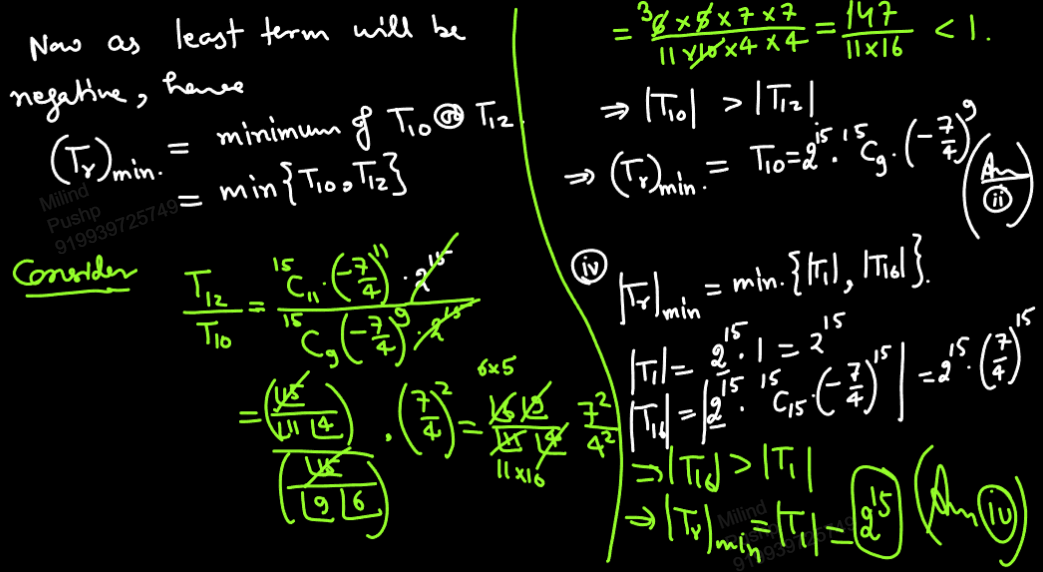 Now as least term will be
negative, hence
(Tᵣ)min. = minimum of T₁₀ or T₁₂
= min{T₁₀, T₁₂}
Milind
Pushp
919939725749
Consider T₁₂/T₁₀ = ¹⁵C₁₁·(-7/4)¹¹·2¹⁵ / ¹⁵C₉(-7/4)⁹·2¹⁵
6×5
= (⌊15/⌊11 ⌊4)/(⌊15/⌊9 ⌊6) · (7/4)² = ⌊6 ⌊9/⌊11 ⌊4 7²/4²
11×10
= ³6×5×7×7/11×10×4×4 = 147/11×16 < 1.
⇒ |T₁₀| > |T₁₂|
⇒ (Tᵣ)min. = T₁₀ = 2¹⁵·¹⁵C₉·(-7/4)⁹ (Ans ii)
iv |Tᵣ|min = min.{|T₁|, |T₁₆|}.
|T₁| = 2¹⁵·1 = 2¹⁵
|T₁₆| = |2¹⁵·¹⁵C₁₅·(-7/4)¹⁵| = 2¹⁵·(7/4)¹⁵
⇒ |T₁₆| > |T₁|
⇒ |Tᵣ|min = |T₁| = 2¹⁵ (Ans iv)
Milind
Pushp
919939725749